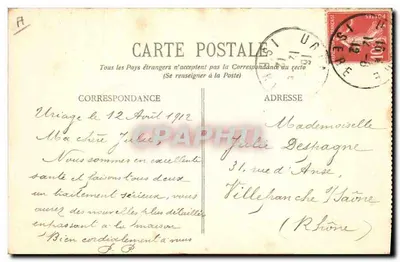 CARTE POSTALE
Tous les Pays étrangers n'acceptent pas la Correspondance au recto
(Se renseigner à la Poste)
CORRESPONDANCE
ADRESSE
Uriage le 12 Avril 1912
Ma chère Julie,
Nous sommes en excellente
santé et faisons tous deux
un traitement sérieux, vous
aurez des nouvelles plus détaillées
en passant à la maison
Bien cordialement à vous
Mademoiselle
Julie
31, rue d'Anse
Villefranche s/Saône
(Rhône)
ISERE